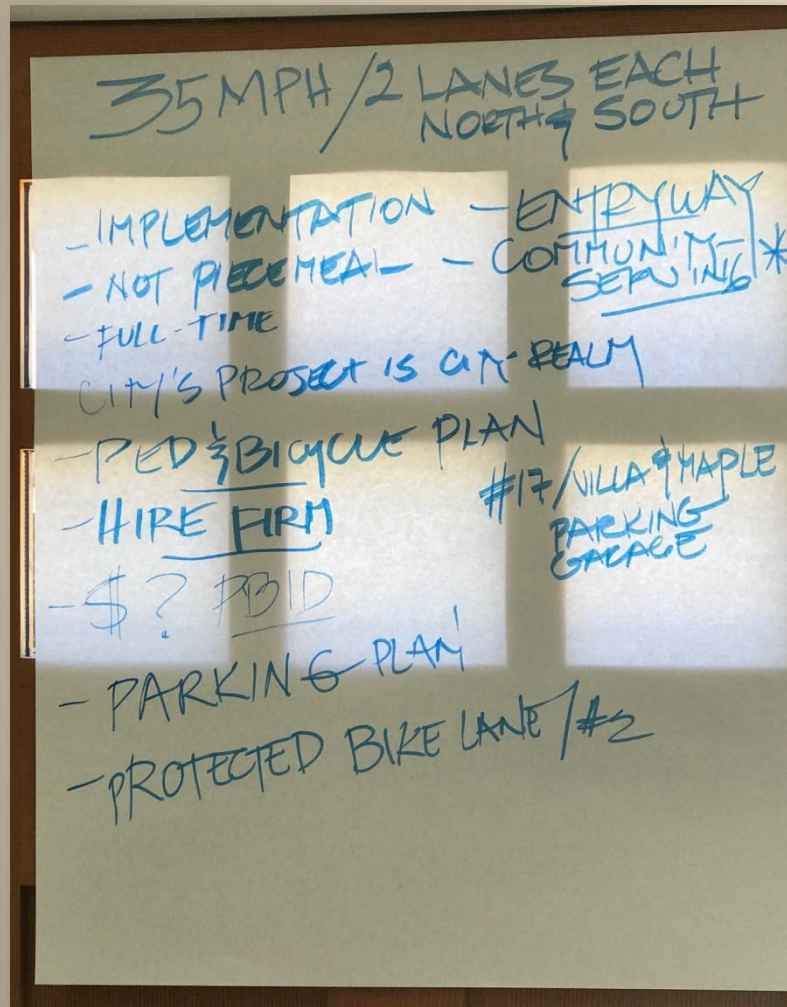 35 MPH / 2 LANES EACH
NORTH & SOUTH
- IMPLEMENTATION
- NOT PIECEMEAL
- FULL-TIME
- ENTRYWAY
- COMMUNITY-
SERVING *
CITY'S PROJECT IS CITY REALM
- PED & BICYCLE PLAN
- HIRE FIRM
- $? PBID
#17 / VILLA & MAPLE
PARKING
GARAGE
- PARKING PLAN
- PROTECTED BIKE LANE / #2